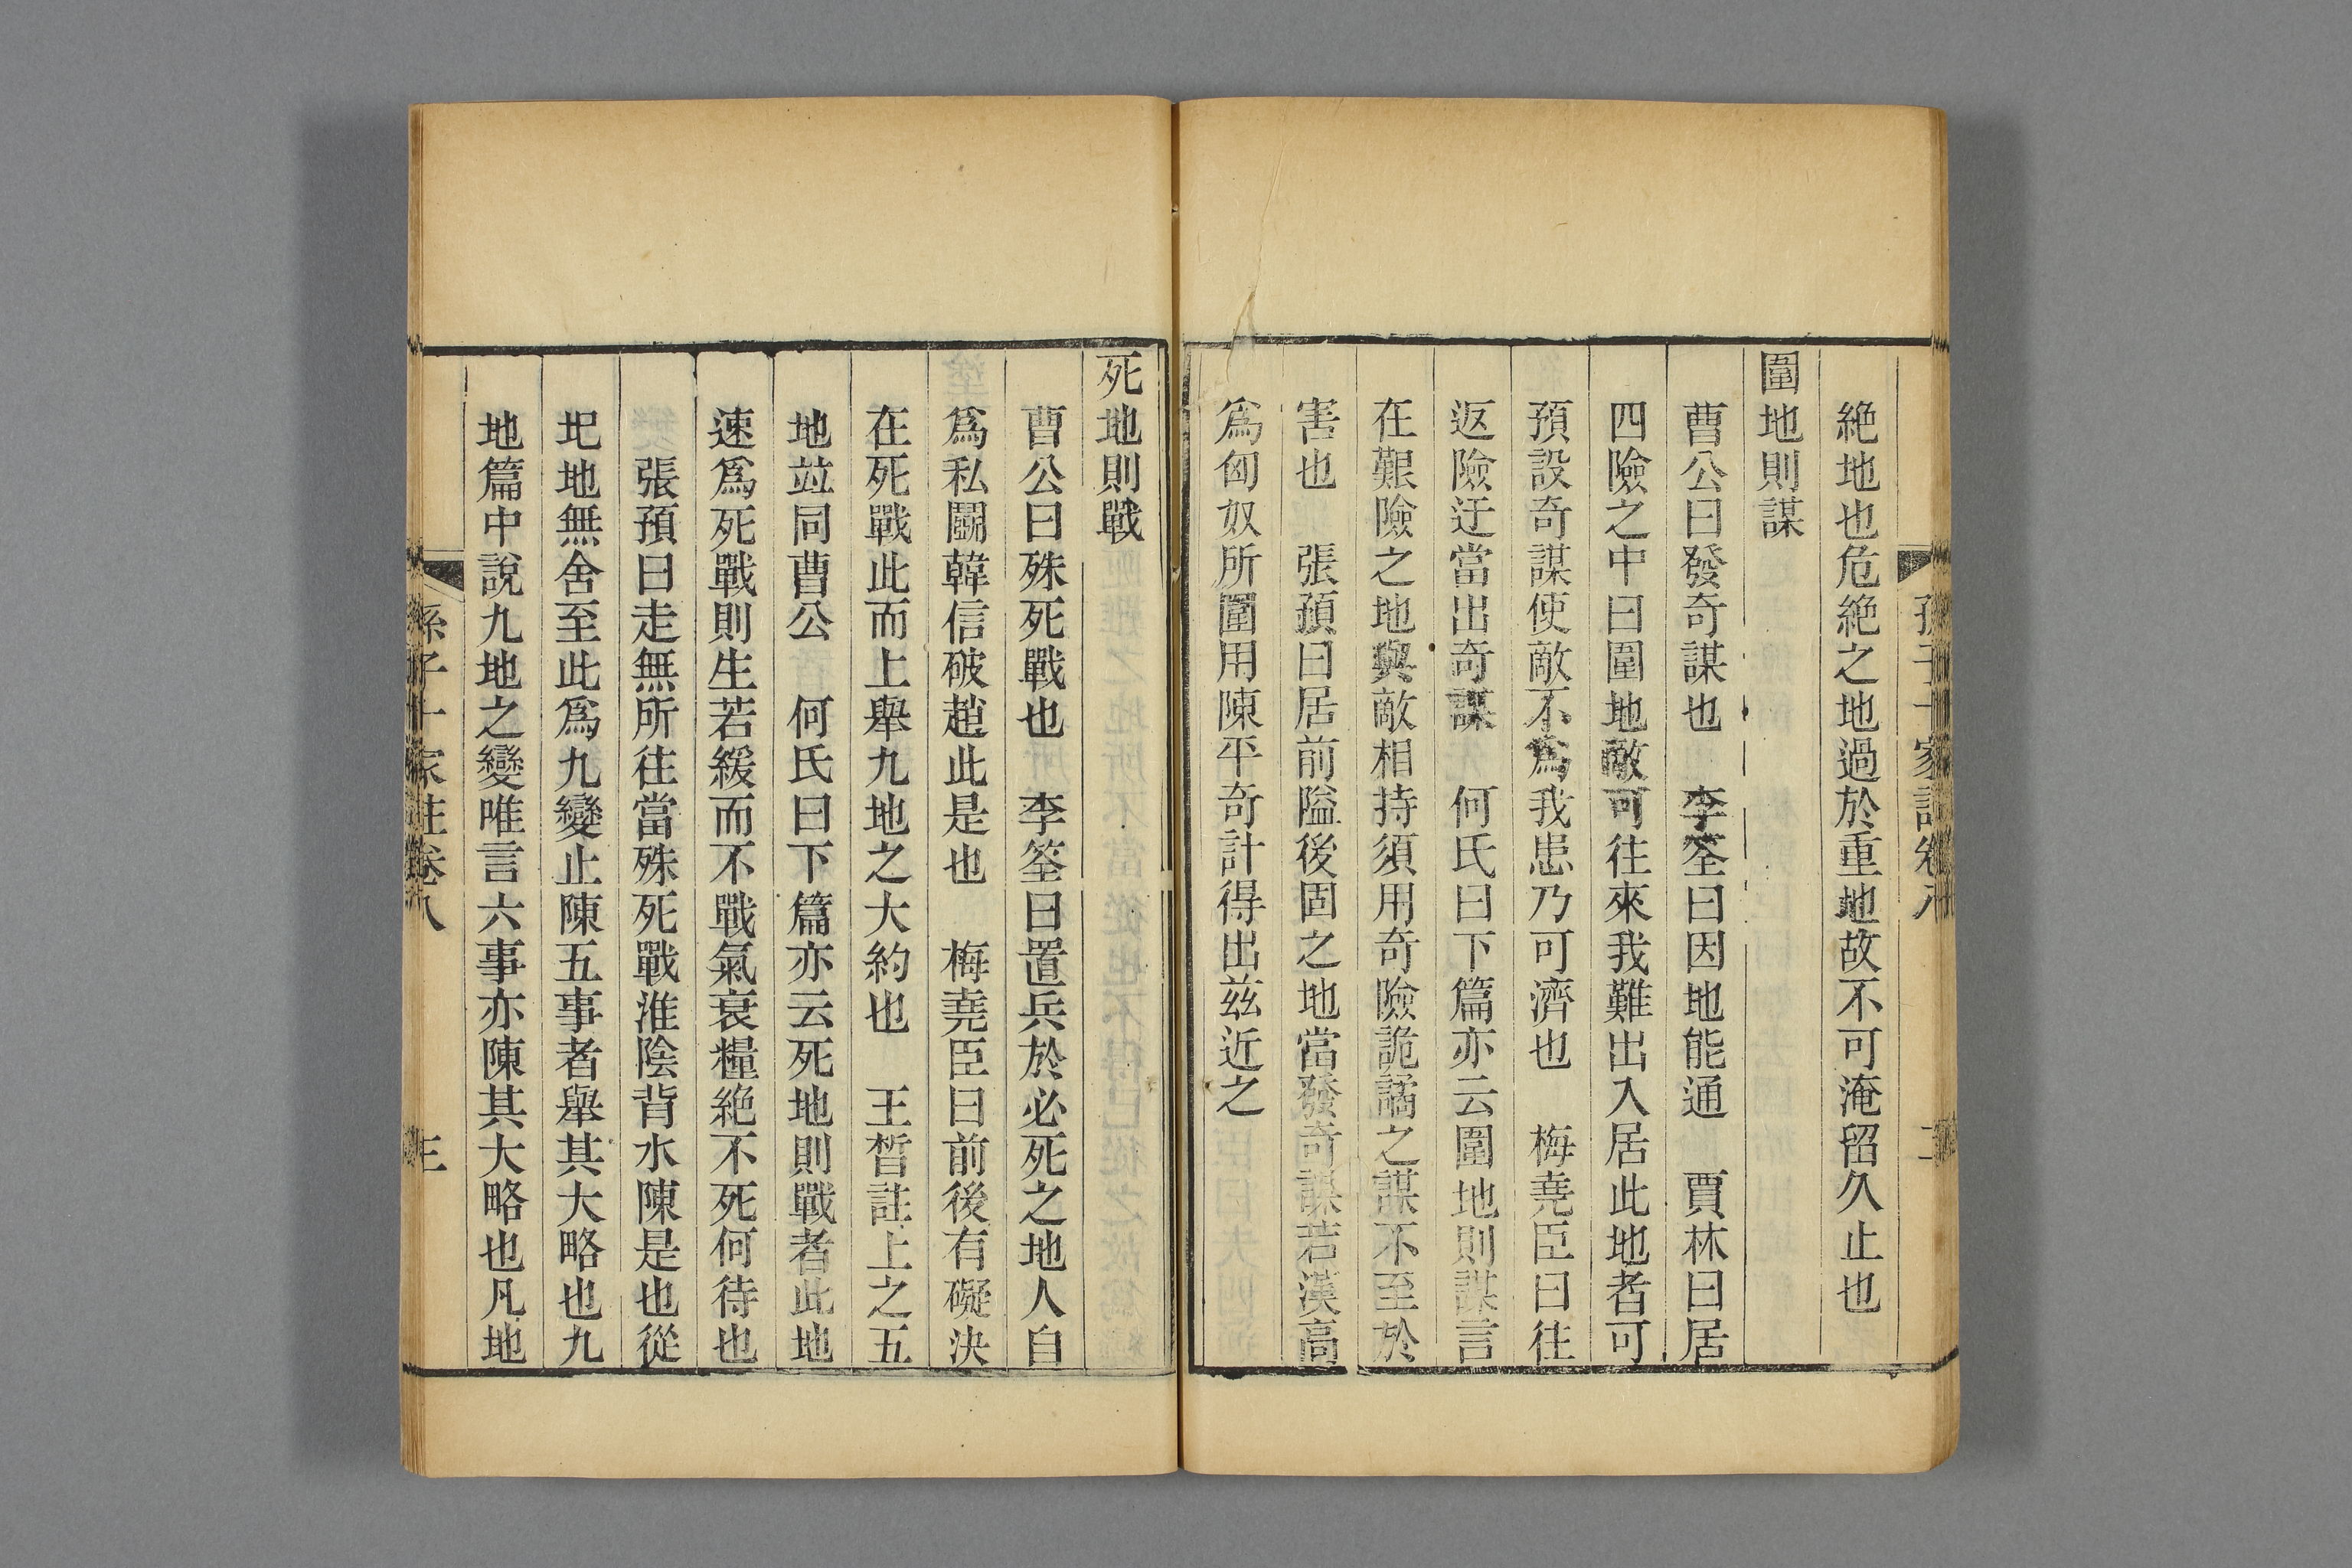 孫子十家註卷八　二
絶地也危絶之地過於重地故不可淹留久止也
圍地則謀
曹公曰發奇謀也　李筌曰因地能通　賈林曰居
四險之中曰圍地敵可往來我難出入居此地者可
預設奇謀使敵不爲我患乃可濟也　梅堯臣曰往
返險迂當出奇謀　何氏曰下篇亦云圍地則謀言
在艱險之地與敵相持須用奇險詭譎之謀不至於
害也　張預曰居前隘後固之地當發奇謀若漢高
爲匈奴所圍用陳平奇計得出兹近之
死地則戰
曹公曰殊死戰也　李筌曰置兵於必死之地人自
爲私鬭韓信破趙此是也　梅堯臣曰前後有礙決
在死戰此而上舉九地之大約也　王晳註上之五
地竝同曹公　何氏曰下篇亦云死地則戰者此地
速爲死戰則生若緩而不戰氣衰糧絶不死何待也
張預曰走無所往當殊死戰淮陰背水陳是也從
圯地無舍至此爲九變止陳五事者舉其大略也九
地篇中說九地之變唯言六事亦陳其大略也凡地
孫子十家註卷八　三